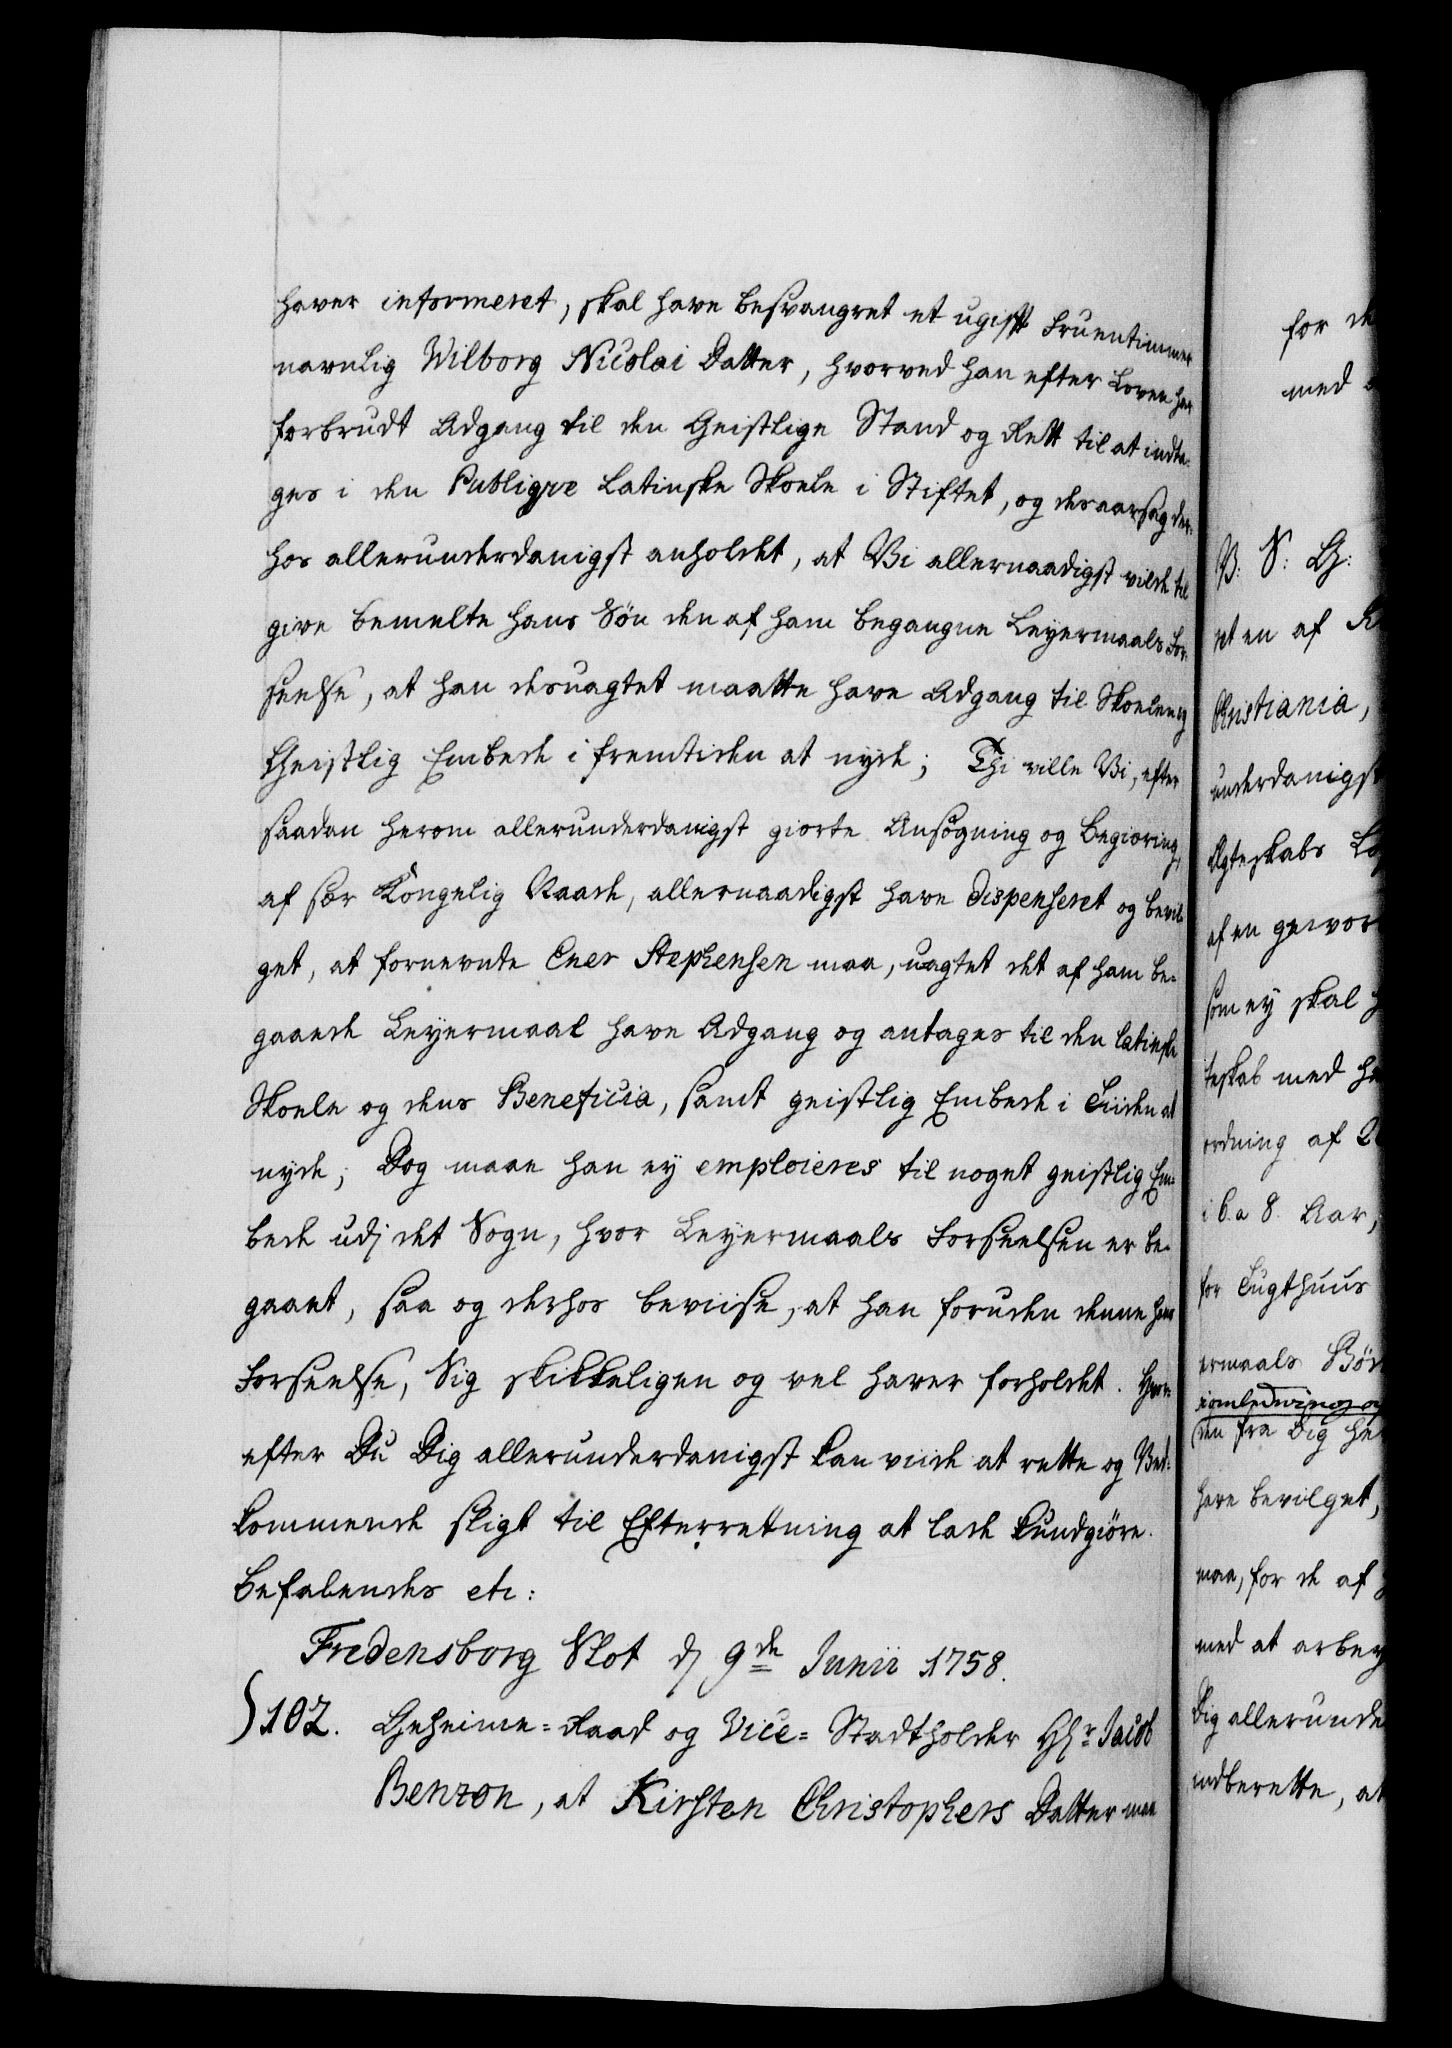 haver informeret, skal have besvangret et ugift Fruentimmer
navnlig Wilborg Nicolai Datter, hvorved han efter Loven har
forbrudt Adgang til den Geistlige Stand og Rett til at indta-
ges i den Publiqve Latinske Skoele i Stiftet, og desaarsag der-
hos allerunderdanigst anholdet, at Vi allernaadigst vilde til
give bemelte hans Søn den af ham begangne Leyermaals For-
seelse, at han desuagtet maatte have Adgang til Skoelen og
Geistlig Embede i fremtiden at nyde; Thi ville Vi, efter
saadan herom allerunderdanigst giorte Ansøgning og Begiæring,
af sær Kongelig Naade, allernaadigst have dispenseret og bevil-
get, at fornevnte Ener Stephensen maa, uagtet det af ham be-
gaaede Leyermaal have Adgang og antages til den latinske
Skoele og dens Beneficia, samt geistlig Embede i Tiiden at
nyde; Dog maae han ey emploieres til noget geistlig Em-
bede udj det Sogn, hvor Leyermaals Forseelsen er be-
gaaet, saa og derhos beviise, at han foruden denne hans
Forseelse, Sig skikkeligen og vel haver forholdet. Hvor-
efter Du Dig allerunderdanigst kan viide at rette og Ved-
kommende sligt til Efterretning at lade kundgiøre.
Befalendes etc:
Fredensborg Slot d 9de Junii 1758.
102. Geheime-Raad og Vice-Stadtholder Hr Jacob
Benzon, at Kirsten Christophers Datter maa
for de
med
V: S: G:
et en af
Christiania,
underdanigst
Ægteskabs
af en
som ey skal
teskab med
ordning af
i 6 a 8. Aar,
for Tugthuus
ermaals
den fra Dig
have bevilget,
maa, for de af
med at arbey
Dig allerunde
indberette, at